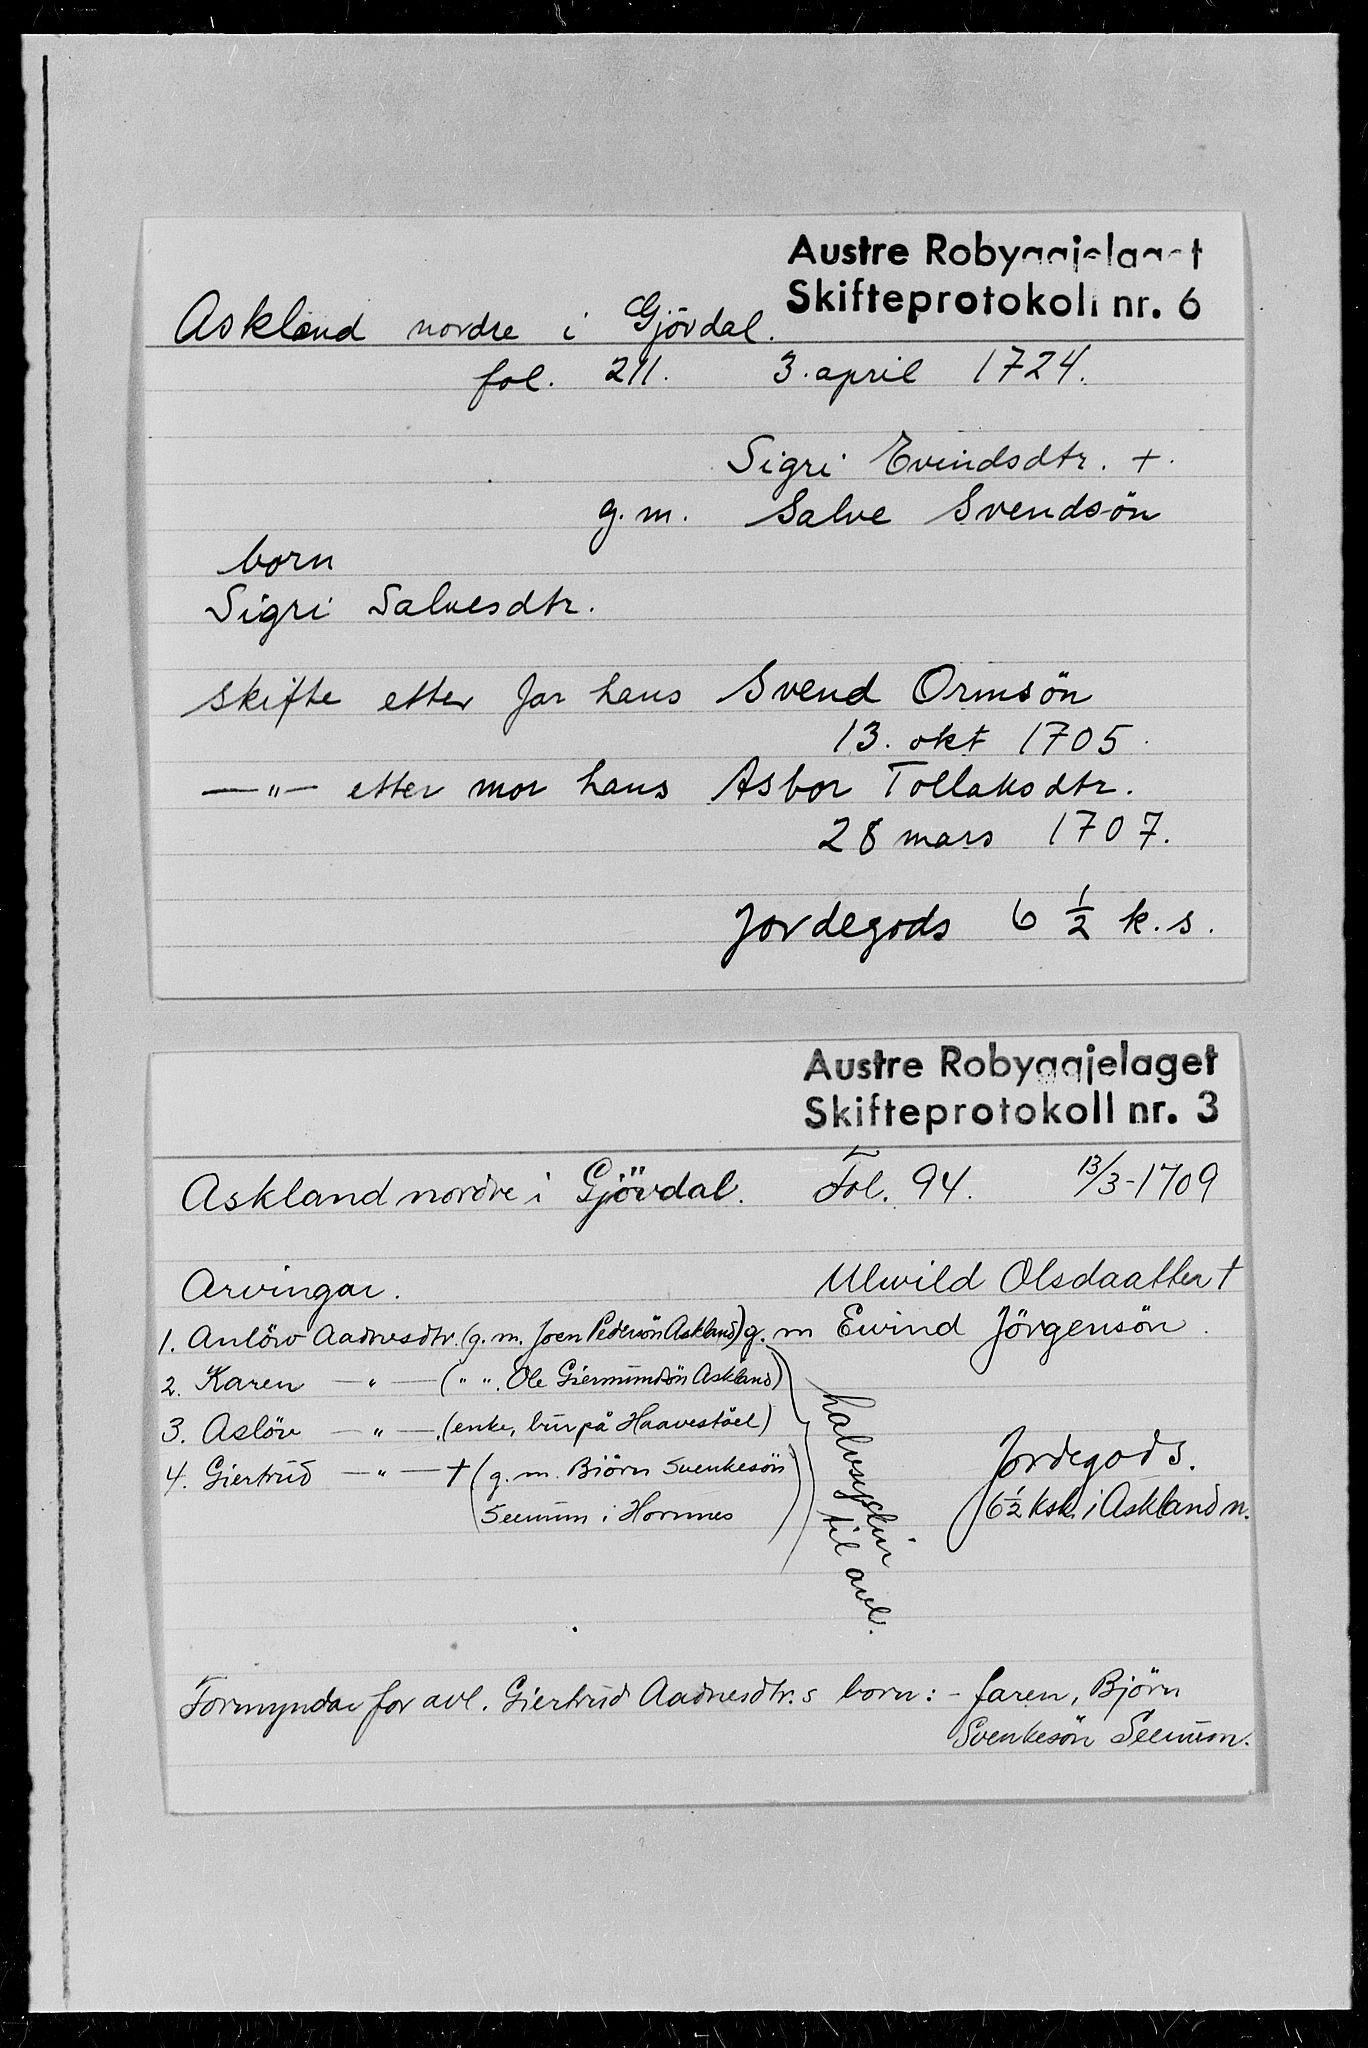 Austre Robyggjelaget
Skifteprotokoll nr. 6
Askland nordre i Gjövdal.
fol. 211. 3. april 1724.
Sigri Evindsdtr. +.
g. m. Salve Svendsön
born
Sigri Salvesdtr.
skifte etter far hans Svend Ormsön
13. okt 1705.
—"— etter mor hans Asbor Tollaksdtr.
28 mars 1707.
Jordegods 6 1/2 k. s.
Austre Robyggjelaget
Skifteprotokoll nr. 3
Askland nordre i Gjövdal. Fol. 94. 13/3-1709
Arvingar. Ulwild Olsdaatter †
1. Anlöw Aadnesdtr. (g. m. Joen Pedersön Askland) g. m Ewind Jörgensön.
2. Karen —"— (" ". Ole Giermundsön Askland)
3. Aslöw —"— (enke, bur på Haavestöel)
4. Giertrud —"— † (g. m. Biörn Svenkesön
Seeuum i Hornnes)
halvsyskin
til avl.
Jordegods.
6 1/2 ksk. i Askland n.
Formyndar for avl. Giertrud Aadnesdtr.s born: - faren, Björn
Svenkesön Seeuum.